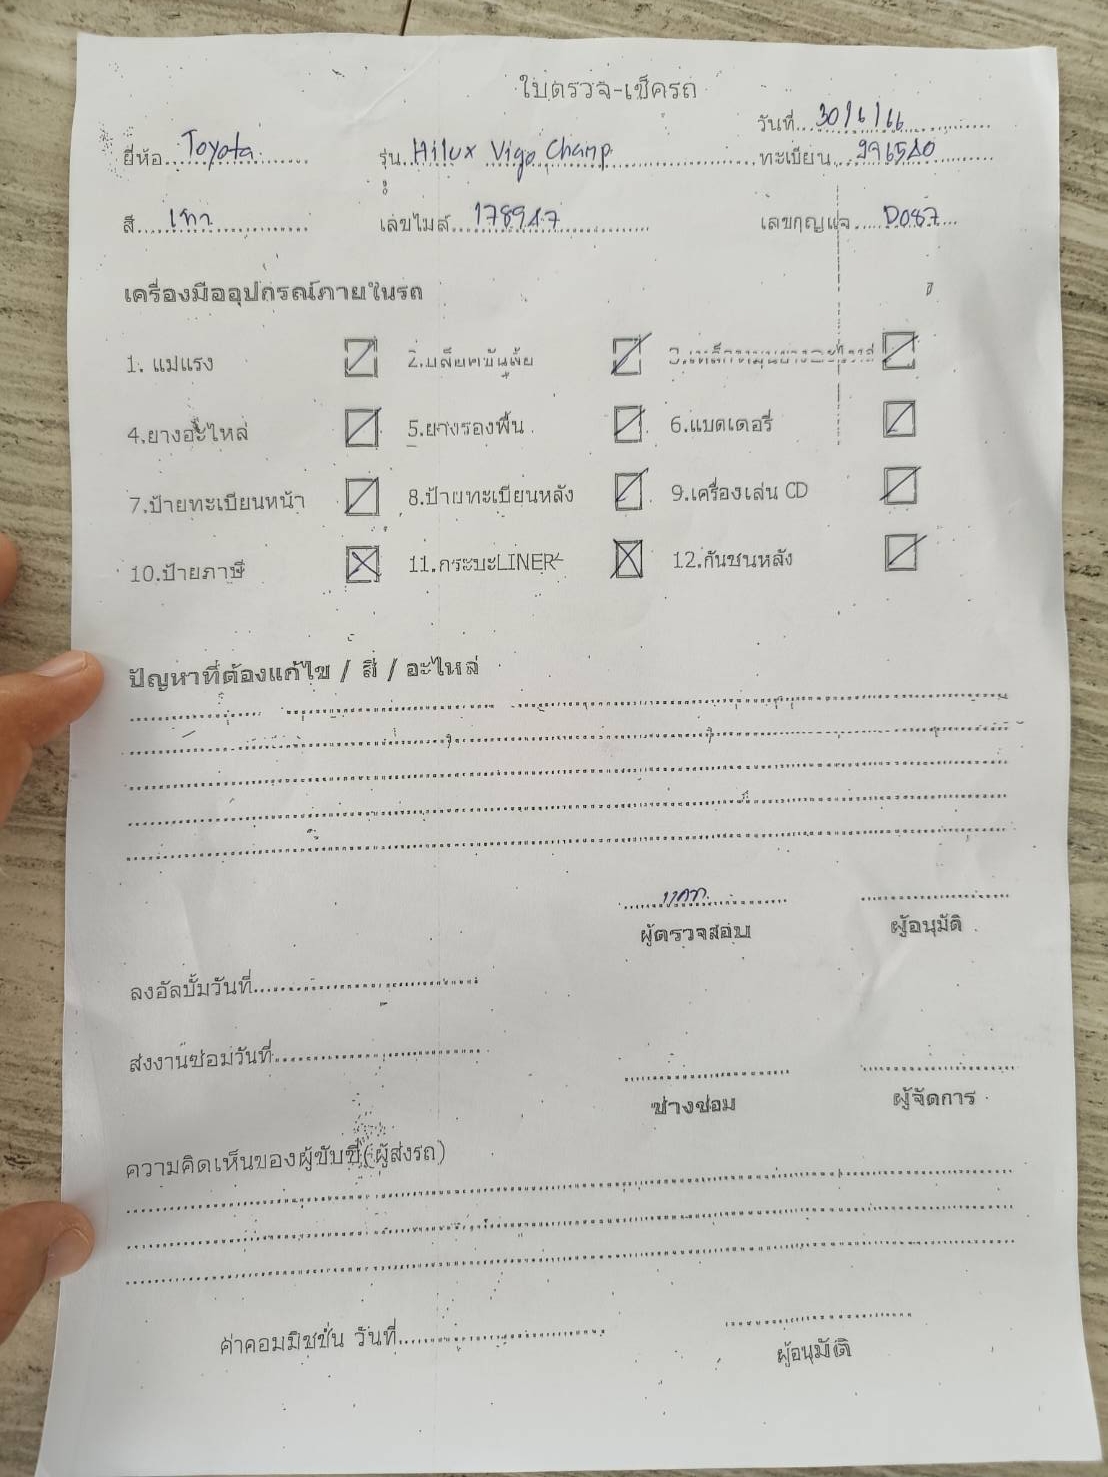 ใบตรวจ-เช็ครถ
วันที่ 30/6/66
ยี่ห้อ Toyota รุ่น Hilux Vigo Champ ทะเบียน
สี เทา เลขไมล์ 178947 เลขกุญแจ D087
เครื่องมืออุปกรณ์ภายในรถ
1. แม่แรง 2.บล็อคขันล้อ
4.ยางอะไหล่ 5.ยางรองพื้น 6.แบตเตอรี่
7.ป้ายทะเบียนหน้า 8.ป้ายทะเบียนหลัง 9.เครื่องเล่น CD
10.ป้ายภาษี 11.กระบะLINER 12.กันชนหลัง
ปัญหาที่ต้องแก้ไข / สี / อะไหล่
ผู้ตรวจสอบ ผู้อนุมัติ
ลงอัลบั้มวันที่
ส่งงานซ่อมวันที่
ช่างซ่อม ผู้จัดการ
ความคิดเห็นของผู้ขับขี่(ผู้ส่งรถ)
ค่าคอมมิชชั่น วันที่
ผู้อนุมัติ